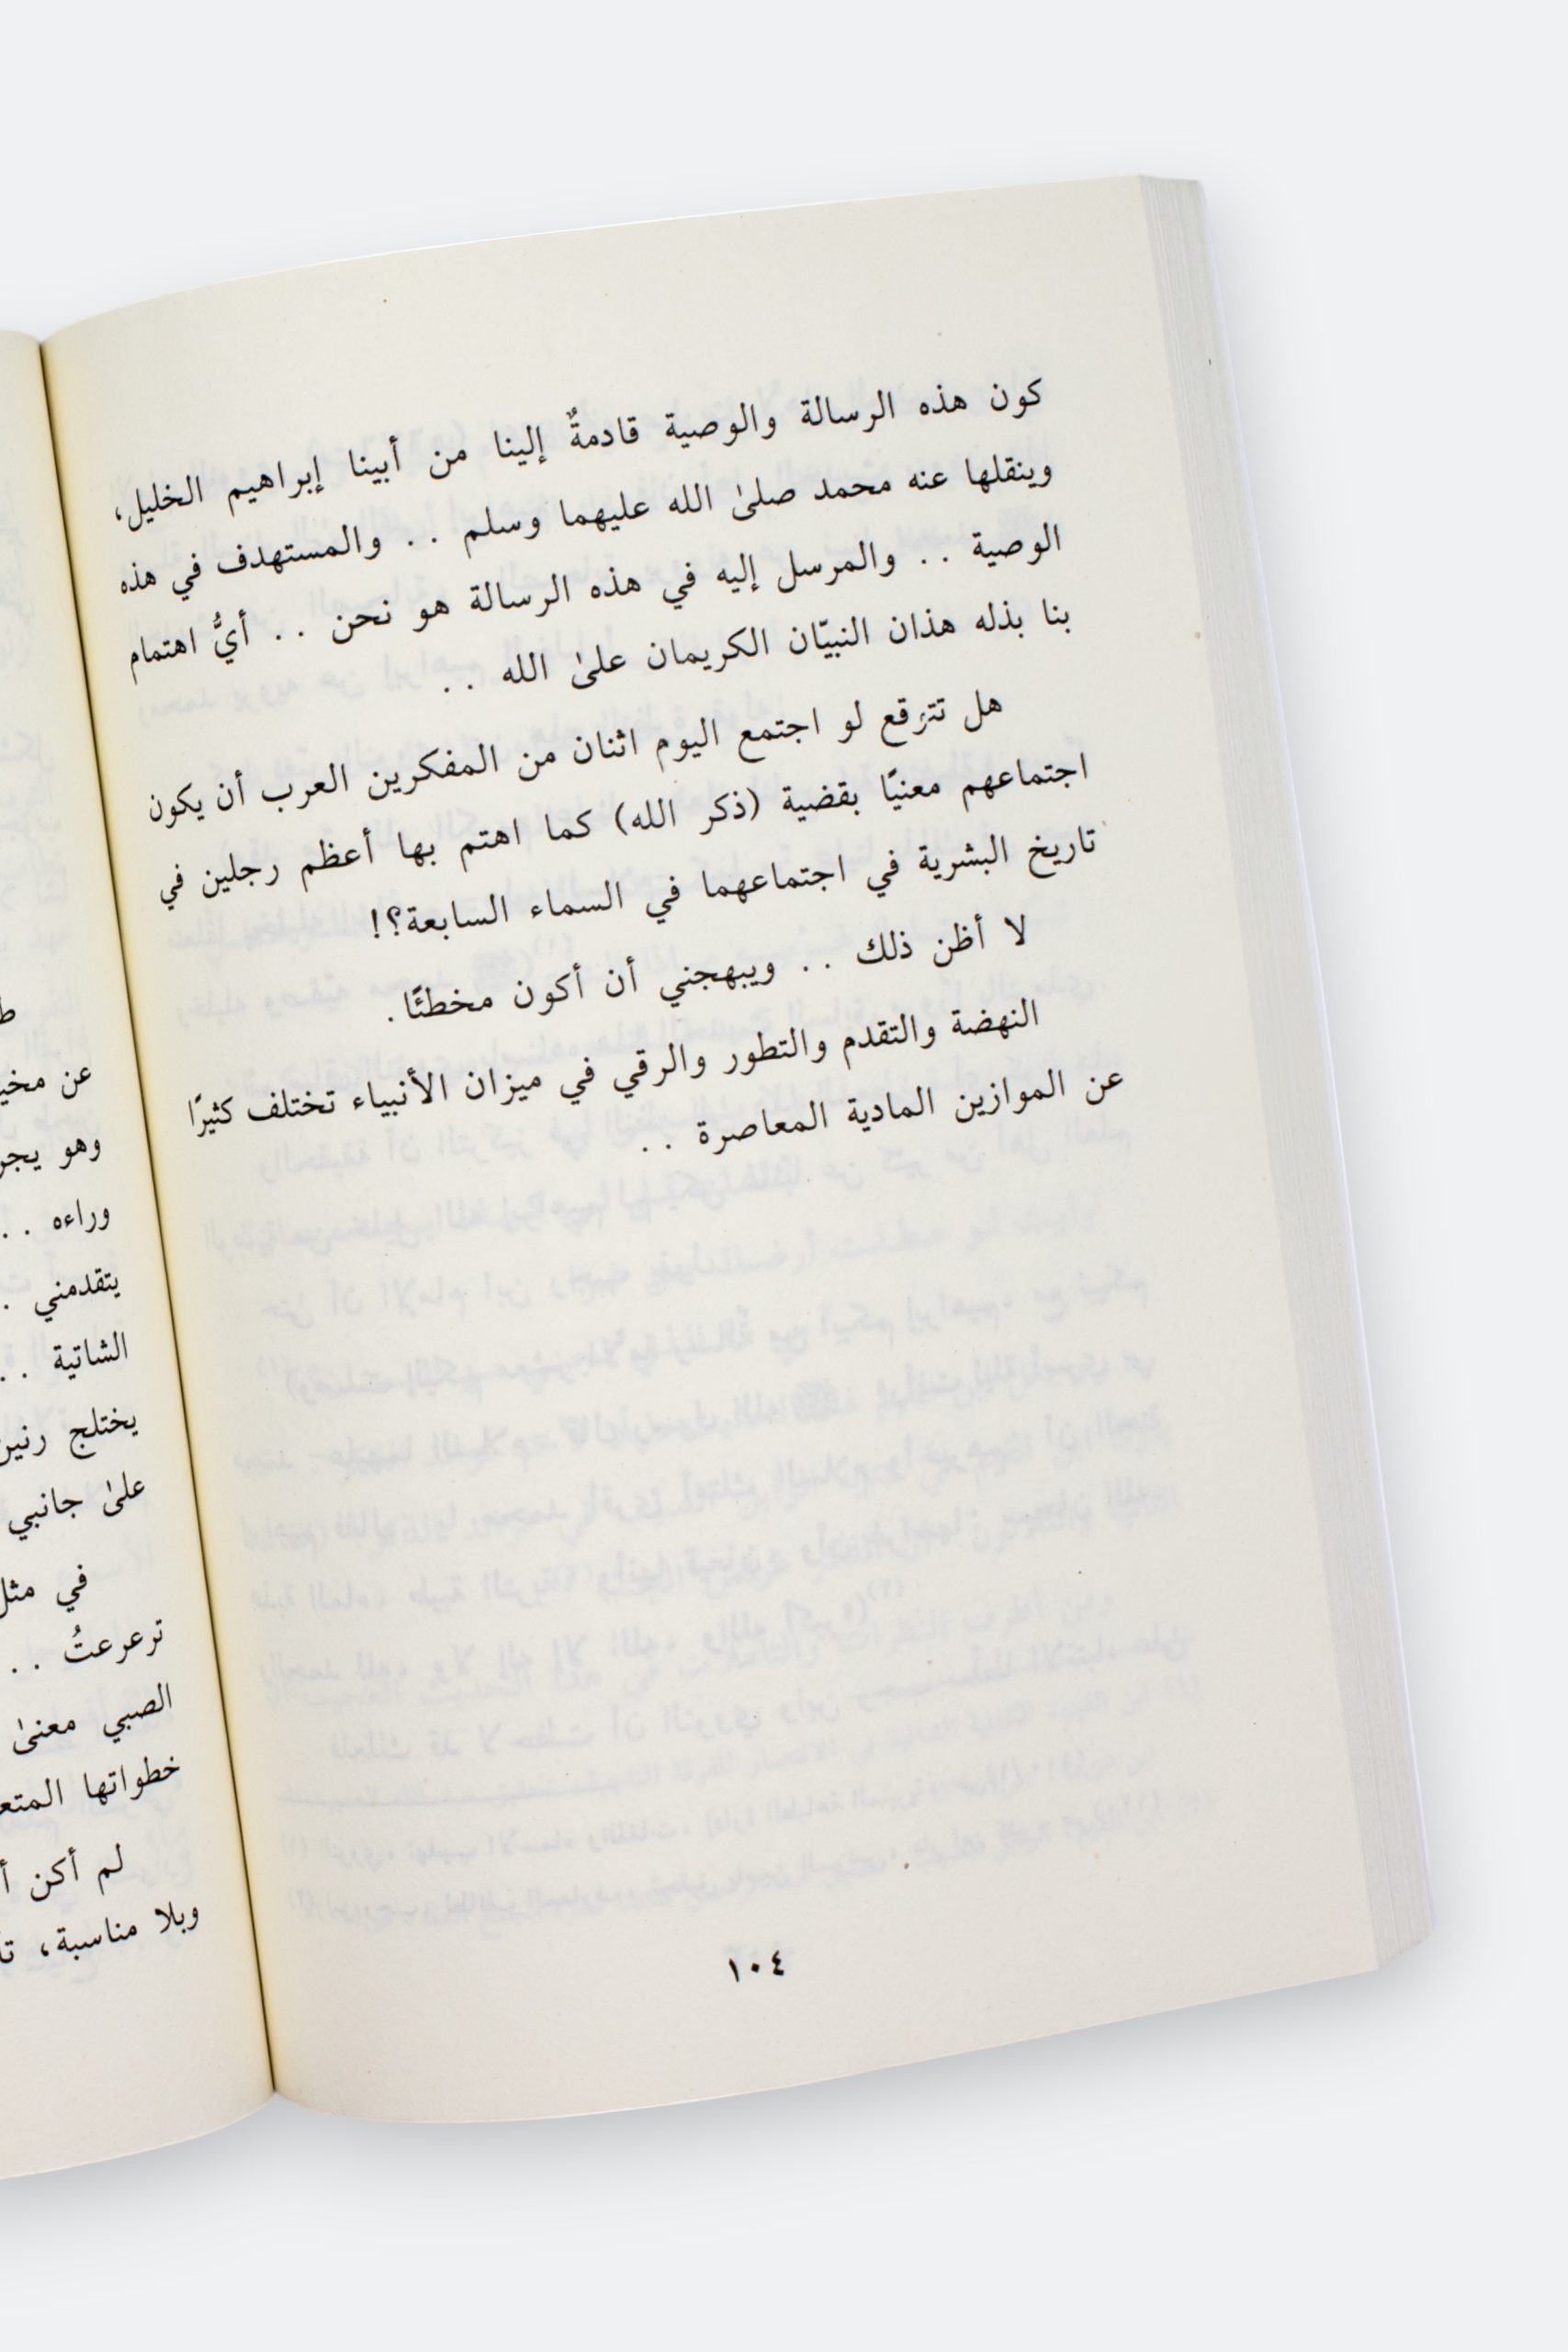 كون هذه الرسالة والوصية قادمةٌ إلينا من أبينا إبراهيم الخليل،
وينقلها عنه محمد صلىٰ الله عليهما وسلم . . والمستهدف في هذه
الوصية . . والمرسل إليه في هذه الرسالة هو نحن . . أيُّ اهتمام
بنا بذله هذان النبيّان الكريمان علىٰ الله . .
هل تتوقع لو اجتمع اليوم اثنان من المفكرين العرب أن يكون
اجتماعهم معنيًا بقضية (ذكر الله) كما اهتم بها أعظم رجلين في
تاريخ البشرية في اجتماعهما في السماء السابعة؟!
لا أظن ذلك . . ويبهجني أن أكون مخطئًا.
النهضة والتقدم والتطور والرقي في ميزان الأنبياء تختلف كثيرًا
عن الموازين المادية المعاصرة . .
١٠٤
عن
وهو
وراءه . .
يتقدمني .
الشاتية . .
يختلج
علىٰ جانبي
في
ترعرعتُ . .
الصبي معنىٰ
خطواتها
لم أكن
وبلا مناسبة،